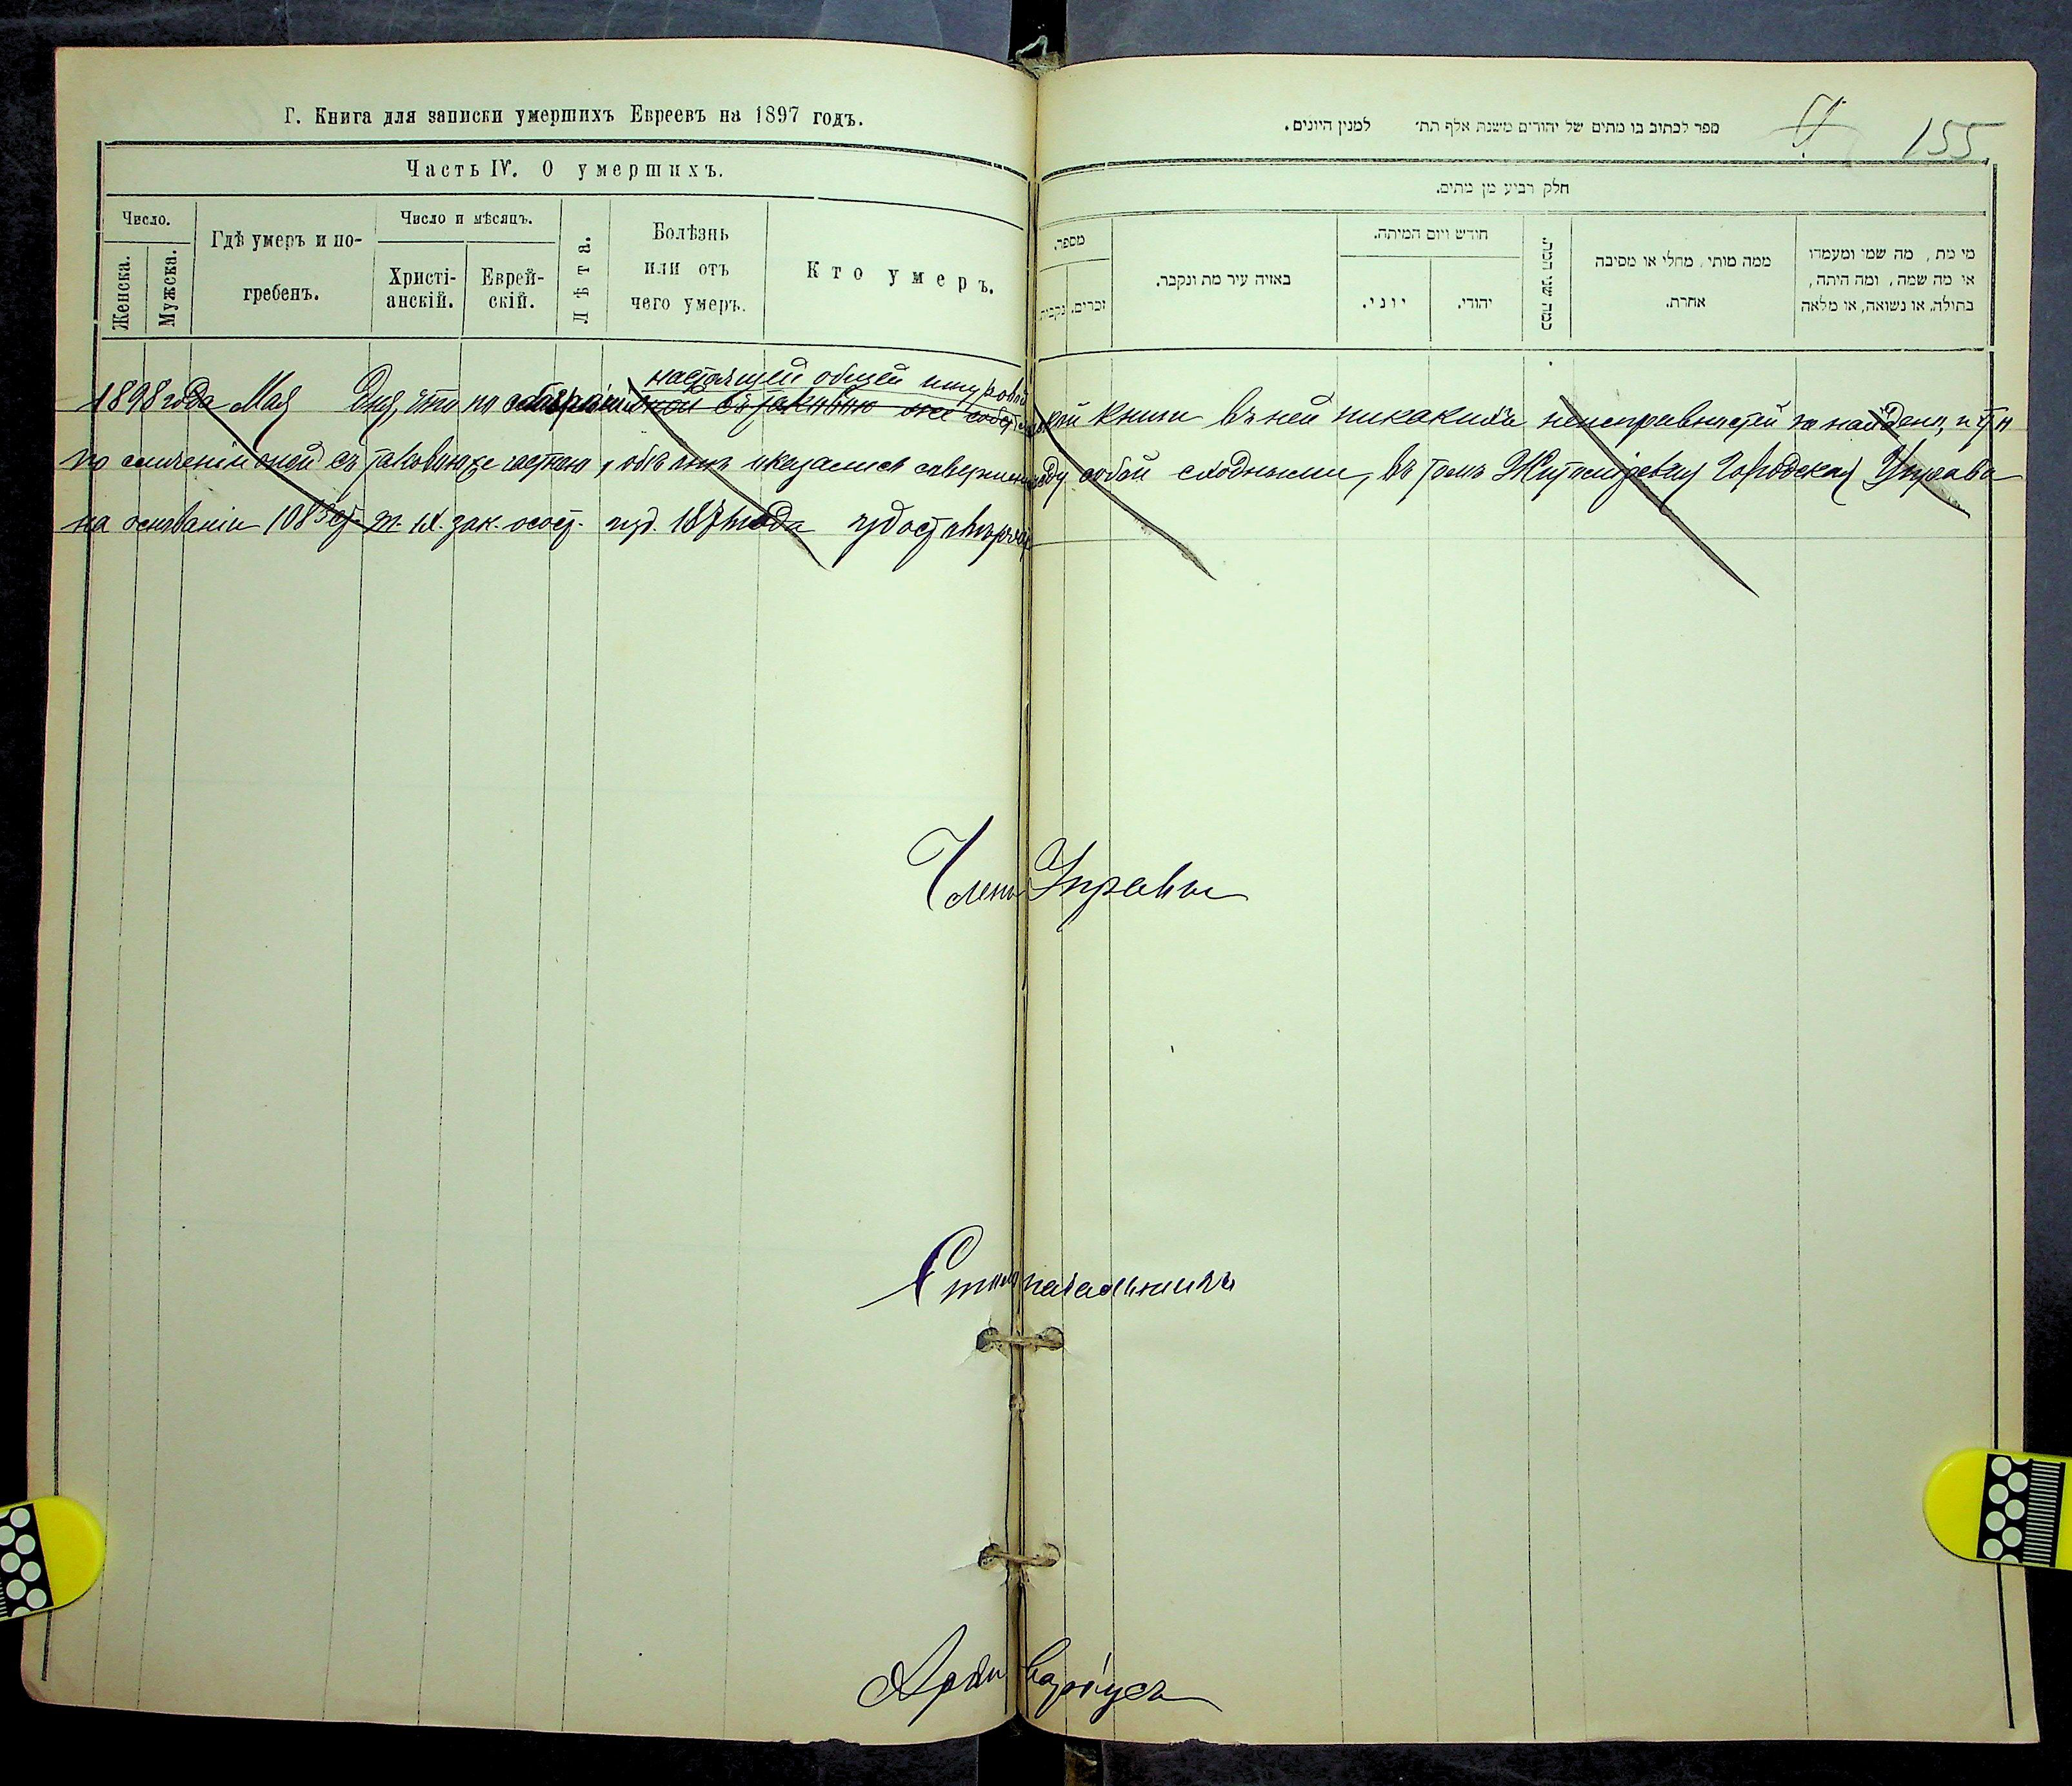 Г. Книга для записки умершихъ Евреевъ на 1897 годъ.
Часть IV. О умершихъ.
Число.
Женска.
Мужска.
Гдѣ умеръ и по-
гребенъ.
Число и мѣсяцъ.
Христі-
анскій.
Еврей-
скій.
Лѣта.
Болѣзнь
или отъ
чего умеръ.
Кто умеръ.
ספר לכתוב בו מתים של יהודים משנת אלף תת׳ למנין היונים.
155
חלק רביע מן מתים.
מספר.
נקבות
זכרים.
באיזה עיר מת ונקבר.
חודש ויום המיתה.
יוני.
יהודי.
כמה שני
ממה מותי, מחלי או מסיבה
אחרת.
מי מת, מה שמו ומעמדו
או מה שמה, ומה היתה,
בתולה. או נשואה, או מלאה
настоящей общей шнуровой
1898 года Мая Дня, что по книги въ ней никакихъ неисправностей не найдено, и
по сличеніи оной съ таковою же частною, обѣ оказались совершенно собой сходными, въ томъ Житомірская Городская Управа
на основаніи 1085 ст. т. IX. зак. о сост. изд. 187 года удостовѣряетъ
Членъ Управы
Столоначальникъ
Архиваріусъ